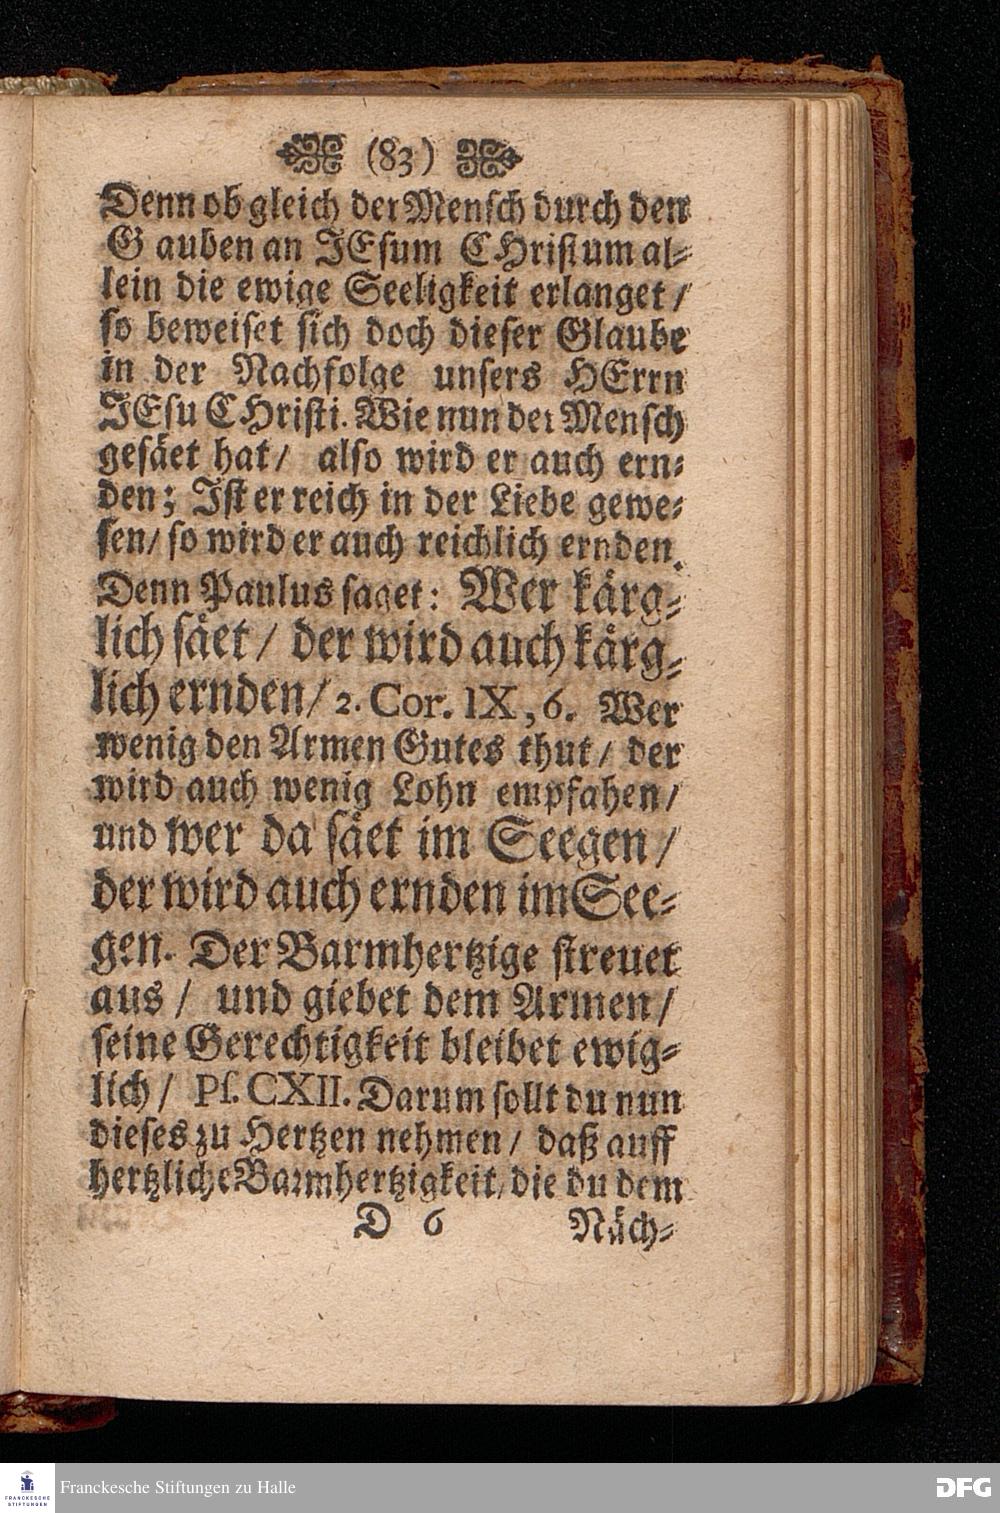 (83)
Denn ob gleich der Mensch durch den
G auben an JEsum CHristum al-
lein die ewige Seeligkeit erlanget /
so beweiset sich doch dieser Glaube
in der Nachfolge unsers HErrn
JEsu CHristi. Wie nun der Mensch
gesäet hat / also wird er auch ern-
den; Ist er reich in der Liebe gewe-
sen / so wird er auch reichlich ernden.
Denn Paulus saget: Wer kärg-
lich säet / der wird auch kärg-
lich ernden / 2. Cor. IX, 6. Wer
wenig den Armen Gutes thut / der
wird auch wenig Lohn empfahen /
und wer da säet im Seegen /
der wird auch ernden im See-
gen. Der Barmhertzige streuet
aus / und giebet dem Armen /
seine Gerechtigkeit bleibet ewig-
lich / Ps. CXII. Darum sollt du nun
dieses zu Hertzen nehmen / daß auff
hertzliche Barmhertzigkeit, die du dem
D 6 Näch-
FRANCKESCHE
STIFTUNGEN
Franckesche Stiftungen zu Halle
DFG